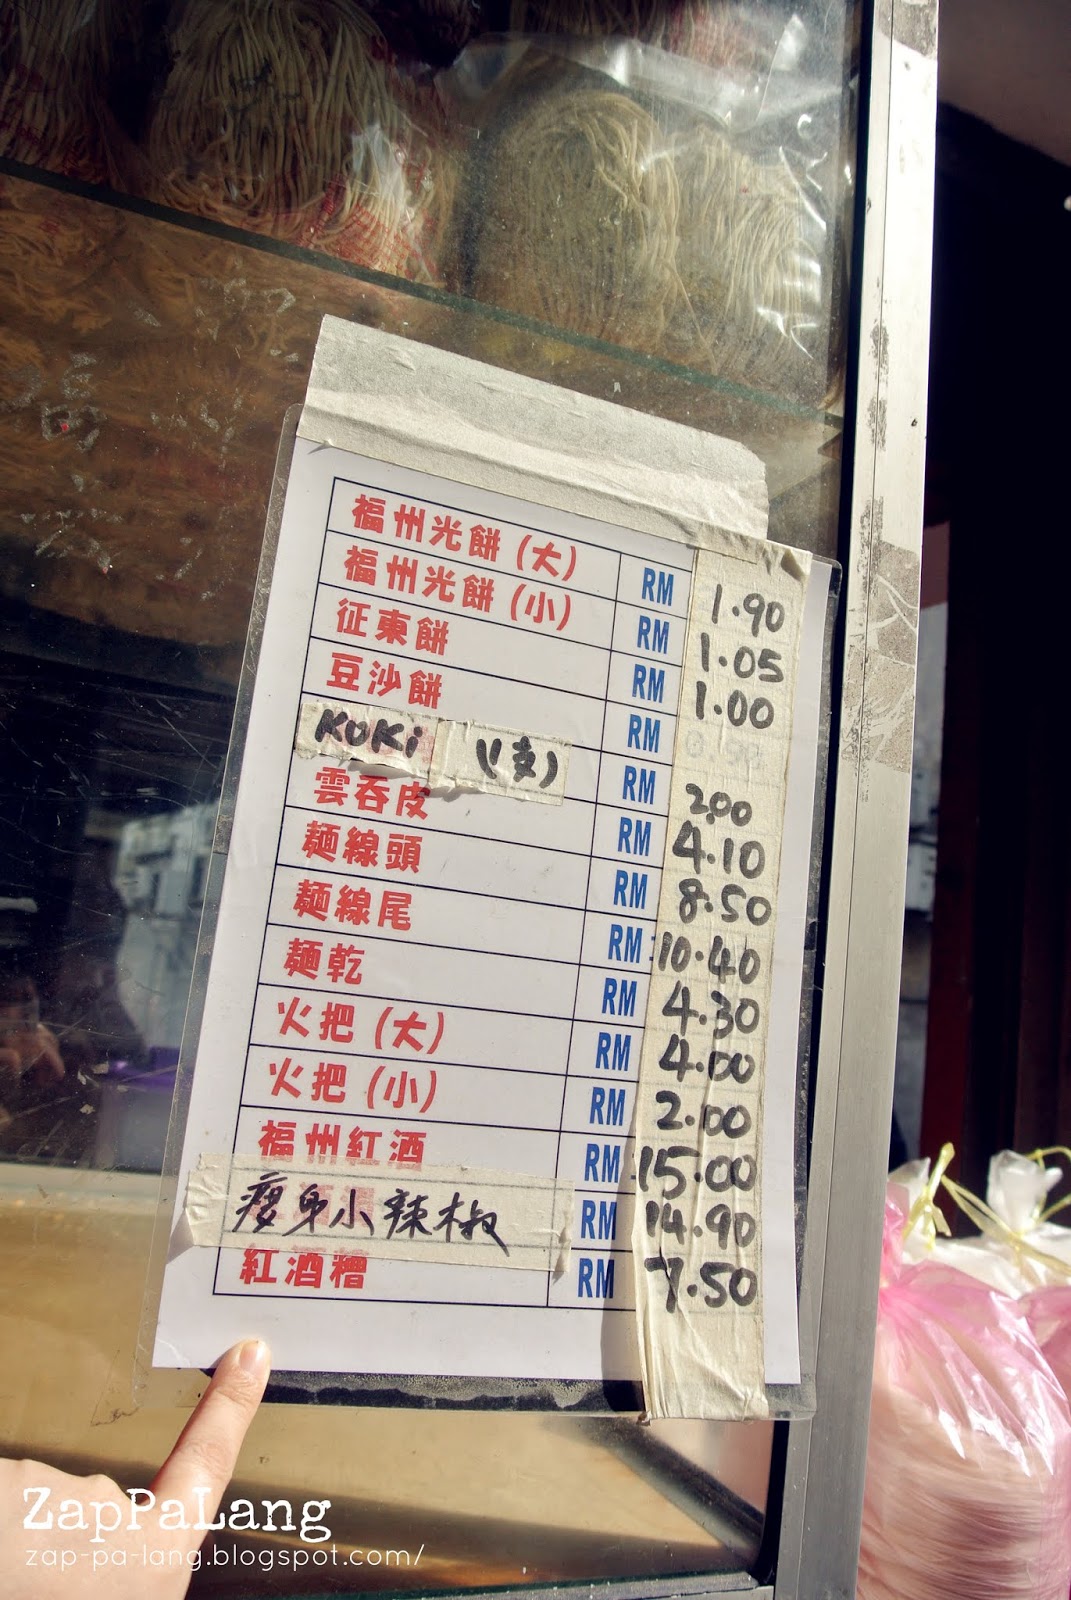 福州光餅 (大) RM 1.90
福州光餅 (小) RM 1.05
征東餅 RM 1.00
豆沙餅 RM
KOKi (支) RM 2.00
雲吞皮 RM 4.10
麵線頭 RM 8.50
麵線尾 RM 10.40
麵乾 RM 4.30
火把 (大) RM 4.00
火把 (小) RM 2.00
福州紅酒 RM 15.00
瘦身小辣椒 RM 14.90
紅酒糟 RM 7.50
ZapPaLang
zap-pa-lang.blogspot.com/